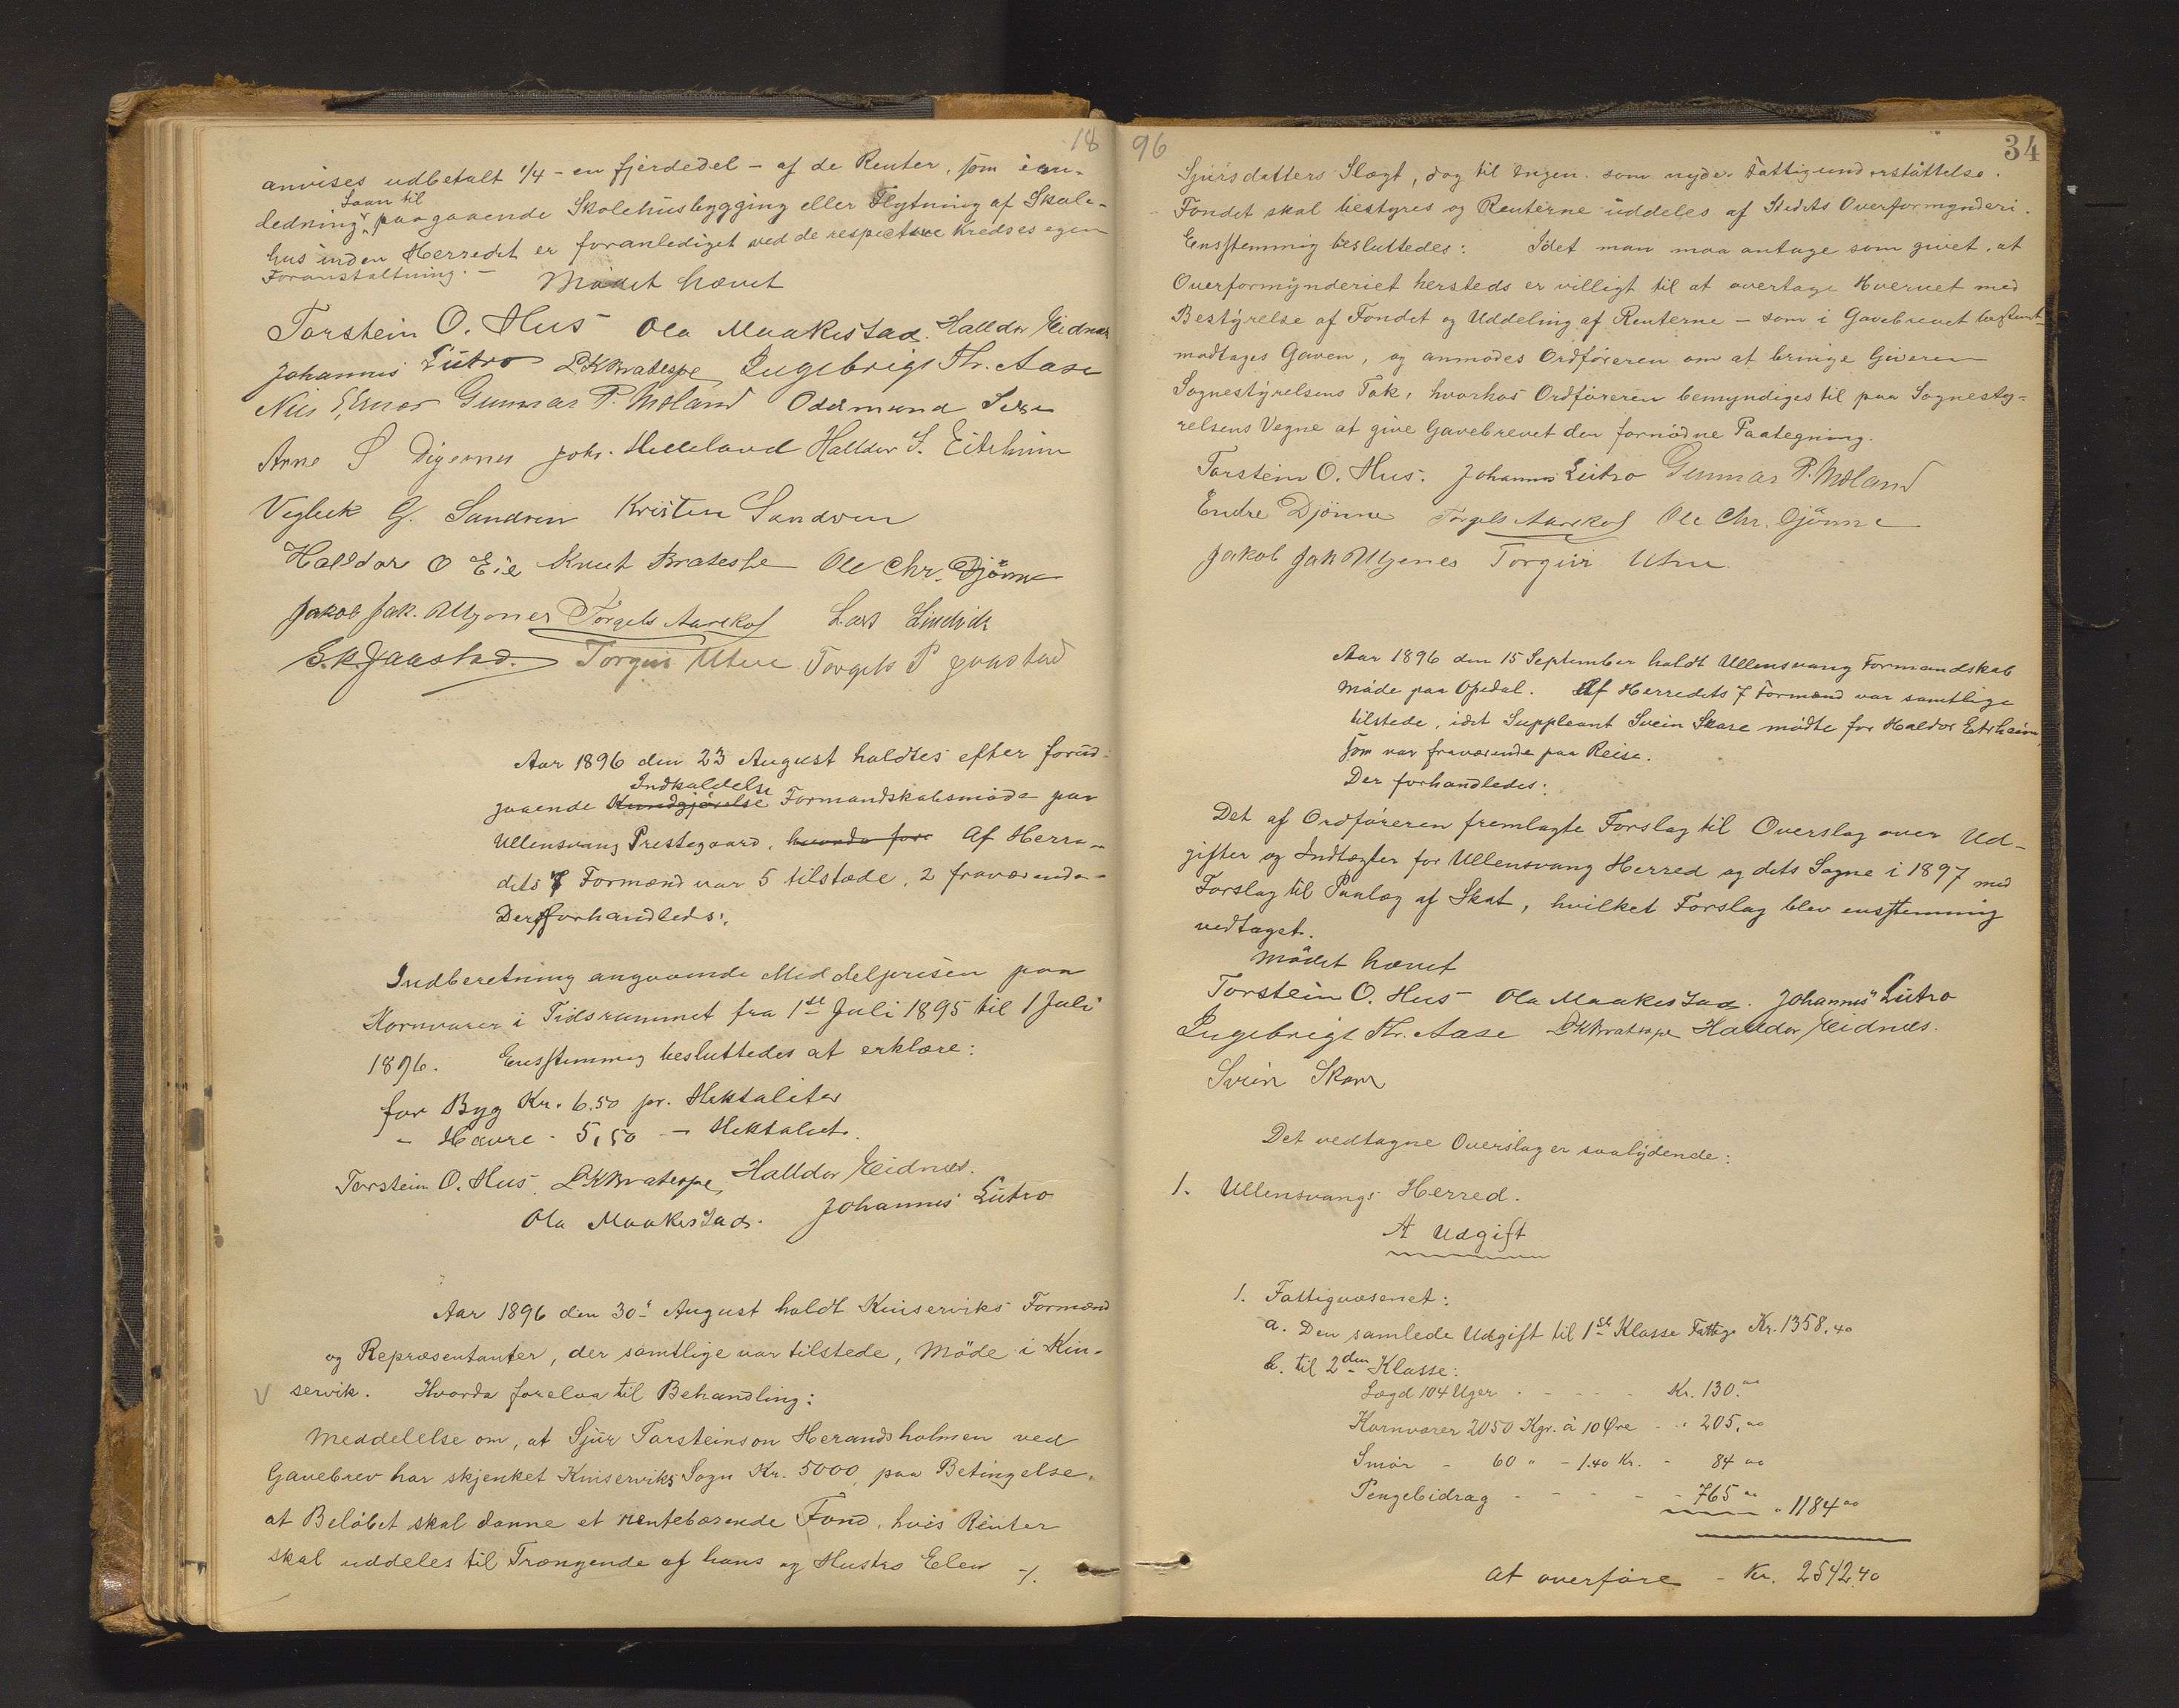 18
anvises udbetalt 1/4 - en fjerdedel - af de Renter, som i an-
Laan til
ledning paagaaende Skolehusbygging eller Flytning af Skole-
hus inden Herredet er foranlediget ved de respective Kredses egen
Foranstaltning. -
Mødet hævet
Torstein O. Hus Ola Maakestad. Halldor Eidnæs
Johannes Lutro LKBratespe Ingebrigt Th. Aase
Nils Gunnar P. Moland Oddmund
Arne S Digernes Johs. Helleland Halldor S. Eitrheim
Vigleik G. Sandven Kristen Sandven
Halldor O Eie Knut Bratespe Ole Chr. Djönne
Jakob Jak. Utgjenes Torgels Aarekol Lars
S.K. Jaastad. Torgeir Utne Torgels P Jaastad
Aar 1896 den 23 August holdtes efter forud-
Indkaldelse
gaaende Kundgjörelse Formandskabsmöde paa
Ullensvang Prestegaard, hvorda fore Af Herre-
dets 7 Formænd var 5 tilstede, 2 fraværende -
Der forhandleds:
Indberetning angaaende Middelprisen paa
Kornvarer i Tidsrummet fra 1ste Juli 1895 til 1 Juli
1896. Ensstemmig besluttedes at erklære:
for Byg Kr. 6.50 pr. Hektoliter
" Havre - 5,50 - Hektolit.
Torstein O. Hus. LKBratespe Halldor Eidnæs.
Ola Maakestad. Johannes Lutro
Aar 1896 den 30te August holdt Kinserviks Formænd
og Repræsentanter, der samtlige var tilstede, Möde i Kin-
servik. Hvorda forelaa til Behandling:
Meddelelse om, at Sjur Torsteinson Herandsholmen ved
Gavebrev har skjenket Kinserviks Sogn Kr. 5000, paa Betingelse,
at Belöbet skal danne et rentebærende Fond, hvis Renter
skal uddeles til Trængende af hans og Hustro Elen ./.
96
34
Sjursdatters Slægt, dog til Ingen som nyder Fattigunderstöttelse.
Fondet skal bestyres og Renterne uddeles af Stedets Overformynderi.
Ensstemmig besluttedes: Idet man maa antage som givet, at
Overformynderiet hersteds er villigt til at overtage Hvervet med
Bestyrelse af Fondet og Uddeling af Renterne - som i Gavebrevet bestemt -
modtages Gaven, og anmodes Ordföreren om at bringe Giveren
Sognestyrelsens Tak, hvorhos Ordföreren bemyndiges til paa Sognesty-
relsens Vegne at give Gavebrevet den fornödne Paategning.
Torstein O. Hus. Johannes Lutro Gunnar P. Moland
Endre Djönne Torgels Aarekol Ole Chr. Djönne
Jakob Jak Utgjenes Torgeir Utne.
Aar 1896 den 15 September holdt Ullensvang Formandskab
Möde paa Opedal. Af Herredets 7 Formænd var samtlige
tilstede, idet Suppleant Svein Skare mödte for Haldor Eitrheim,
som var fraværende paa Reise.
Der forhandledes:
Det af Ordföreren fremlagte Forslag til Overslag over Ud-
gifter og Indtægter for Ullensvang Herred og dets Sogne i 1897 med
Forslag til Paalæg af Skat, hvilket Forslag blev ensstemmig
vedtaget.
Mödet hævet
Torstein O. Hus Ola Maakestad. Johannes Lutro
Ingebrigt Th. Aase LKBratespe Halldor Eidnæs.
Svein Skare
Det vedtagne Overslag er saalydende:
1. Ullensvangs Herred.
A Udgift
1. Fattigvæsenet:
a. Den samlede Udgift til 1ste Klasse Fattige Kr. 1358.40
b. til 2den Klasse:
Lægd 104 Uger - - - - Kr. 130.00
Kornvarer 2050 Kgr. á 10 Øre - " 205.00
Smör - 60 " - 1.40 Kr. - 84 00
Pengebidrag - - - - - 765 00 " 1184 00
At overföre - Kr. 2542.40